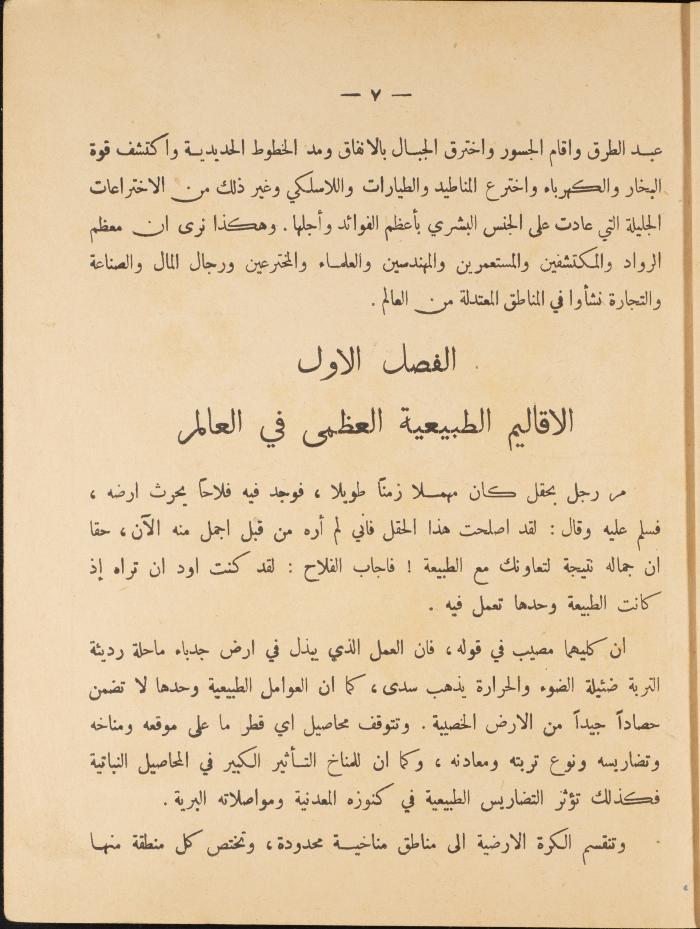 — ٧ —
عبد الطرق واقام الجسور واخترق الجبال بالانفاق ومد الخطوط الحديدية واكتشف قوة
البخار والكهرباء واخترع المناطيد والطيارات واللاسلكي وغير ذلك من الاختراعات
الجليلة التي عادت على الجنس البشري بأعظم الفوائد وأجلها . وهكذا نرى ان معظم
الرواد والمكتشفين والمستعمرين والمهندسين والعلماء والمخترعين ورجال المال والصناعة
والتجارة نشأوا في المناطق المعتدلة من العالم .
الفصل الاول
الاقاليم الطبيعية العظمى في العالم
مر رجل بحقل كان مهملا زمنًا طويلا ، فوجد فيه فلاحًا يحرث ارضه ،
فسلم عليه وقال : لقد اصلحت هذا الحقل فاني لم أره من قبل اجمل منه الآن ، حقا
ان جماله نتيجة لتعاونك مع الطبيعة ! فاجاب الفلاح : لقد كنت اود ان تراه إذ
كانت الطبيعة وحدها تعمل فيه .
ان كليهما مصيب في قوله ، فان العمل الذي يبذل في ارض جدباء ماحلة رديئة
التربة ضئيلة الضوء والحرارة يذهب سدى ، كما ان العوامل الطبيعية وحدها لا تضمن
حصاداً جيداً من الارض الخصيبة . وتتوقف محاصيل اي قطر ما على موقعه ومناخه
وتضاريسه ونوع تربته ومعادنه ، وكما ان للمناخ التأثير الكبير في المحاصيل النباتية
فكذلك تؤثر التضاريس الطبيعية في كنوزه المعدنية ومواصلاته البرية .
وتنقسم الكرة الارضية الى مناطق مناخية محدودة ، وتختص كل منطقة منها